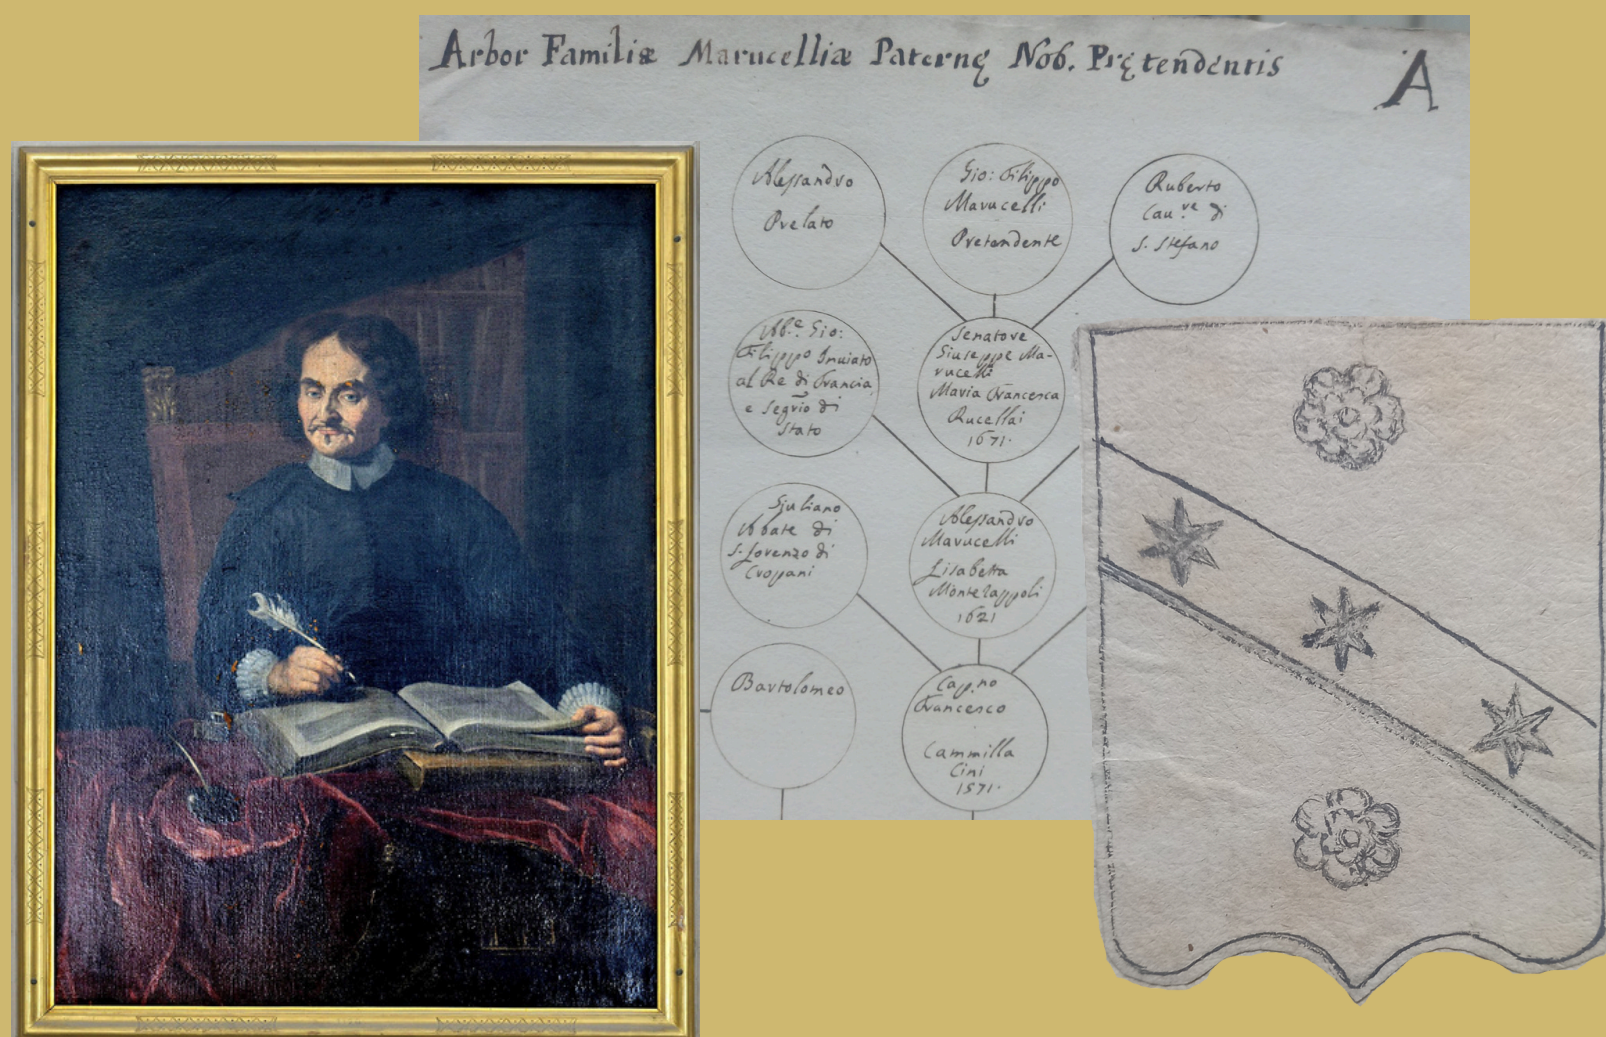 Arbor Familiæ Marucelliæ Paternę Nob. Prętendentis
A
Alessandro
Prelato
Gio: Filippo
Marucelli
Pretendente
Ruberto
Cau.re di
S. Stefano
Ab.e Gio:
Filippo Inuiato
al Re di Francia
e Segrio di
Stato
Senatore
Giuseppe Ma-
rucelli
Maria Francesca
Rucellai
1671.
Giuliano
Abate di
S. Lorenzo di
Cropani
Alessandro
Marucelli
Lisabetta
Monterappoli
1621
Bartolomeo
Cap.no
Francesco
Cammilla
Cini
1571.